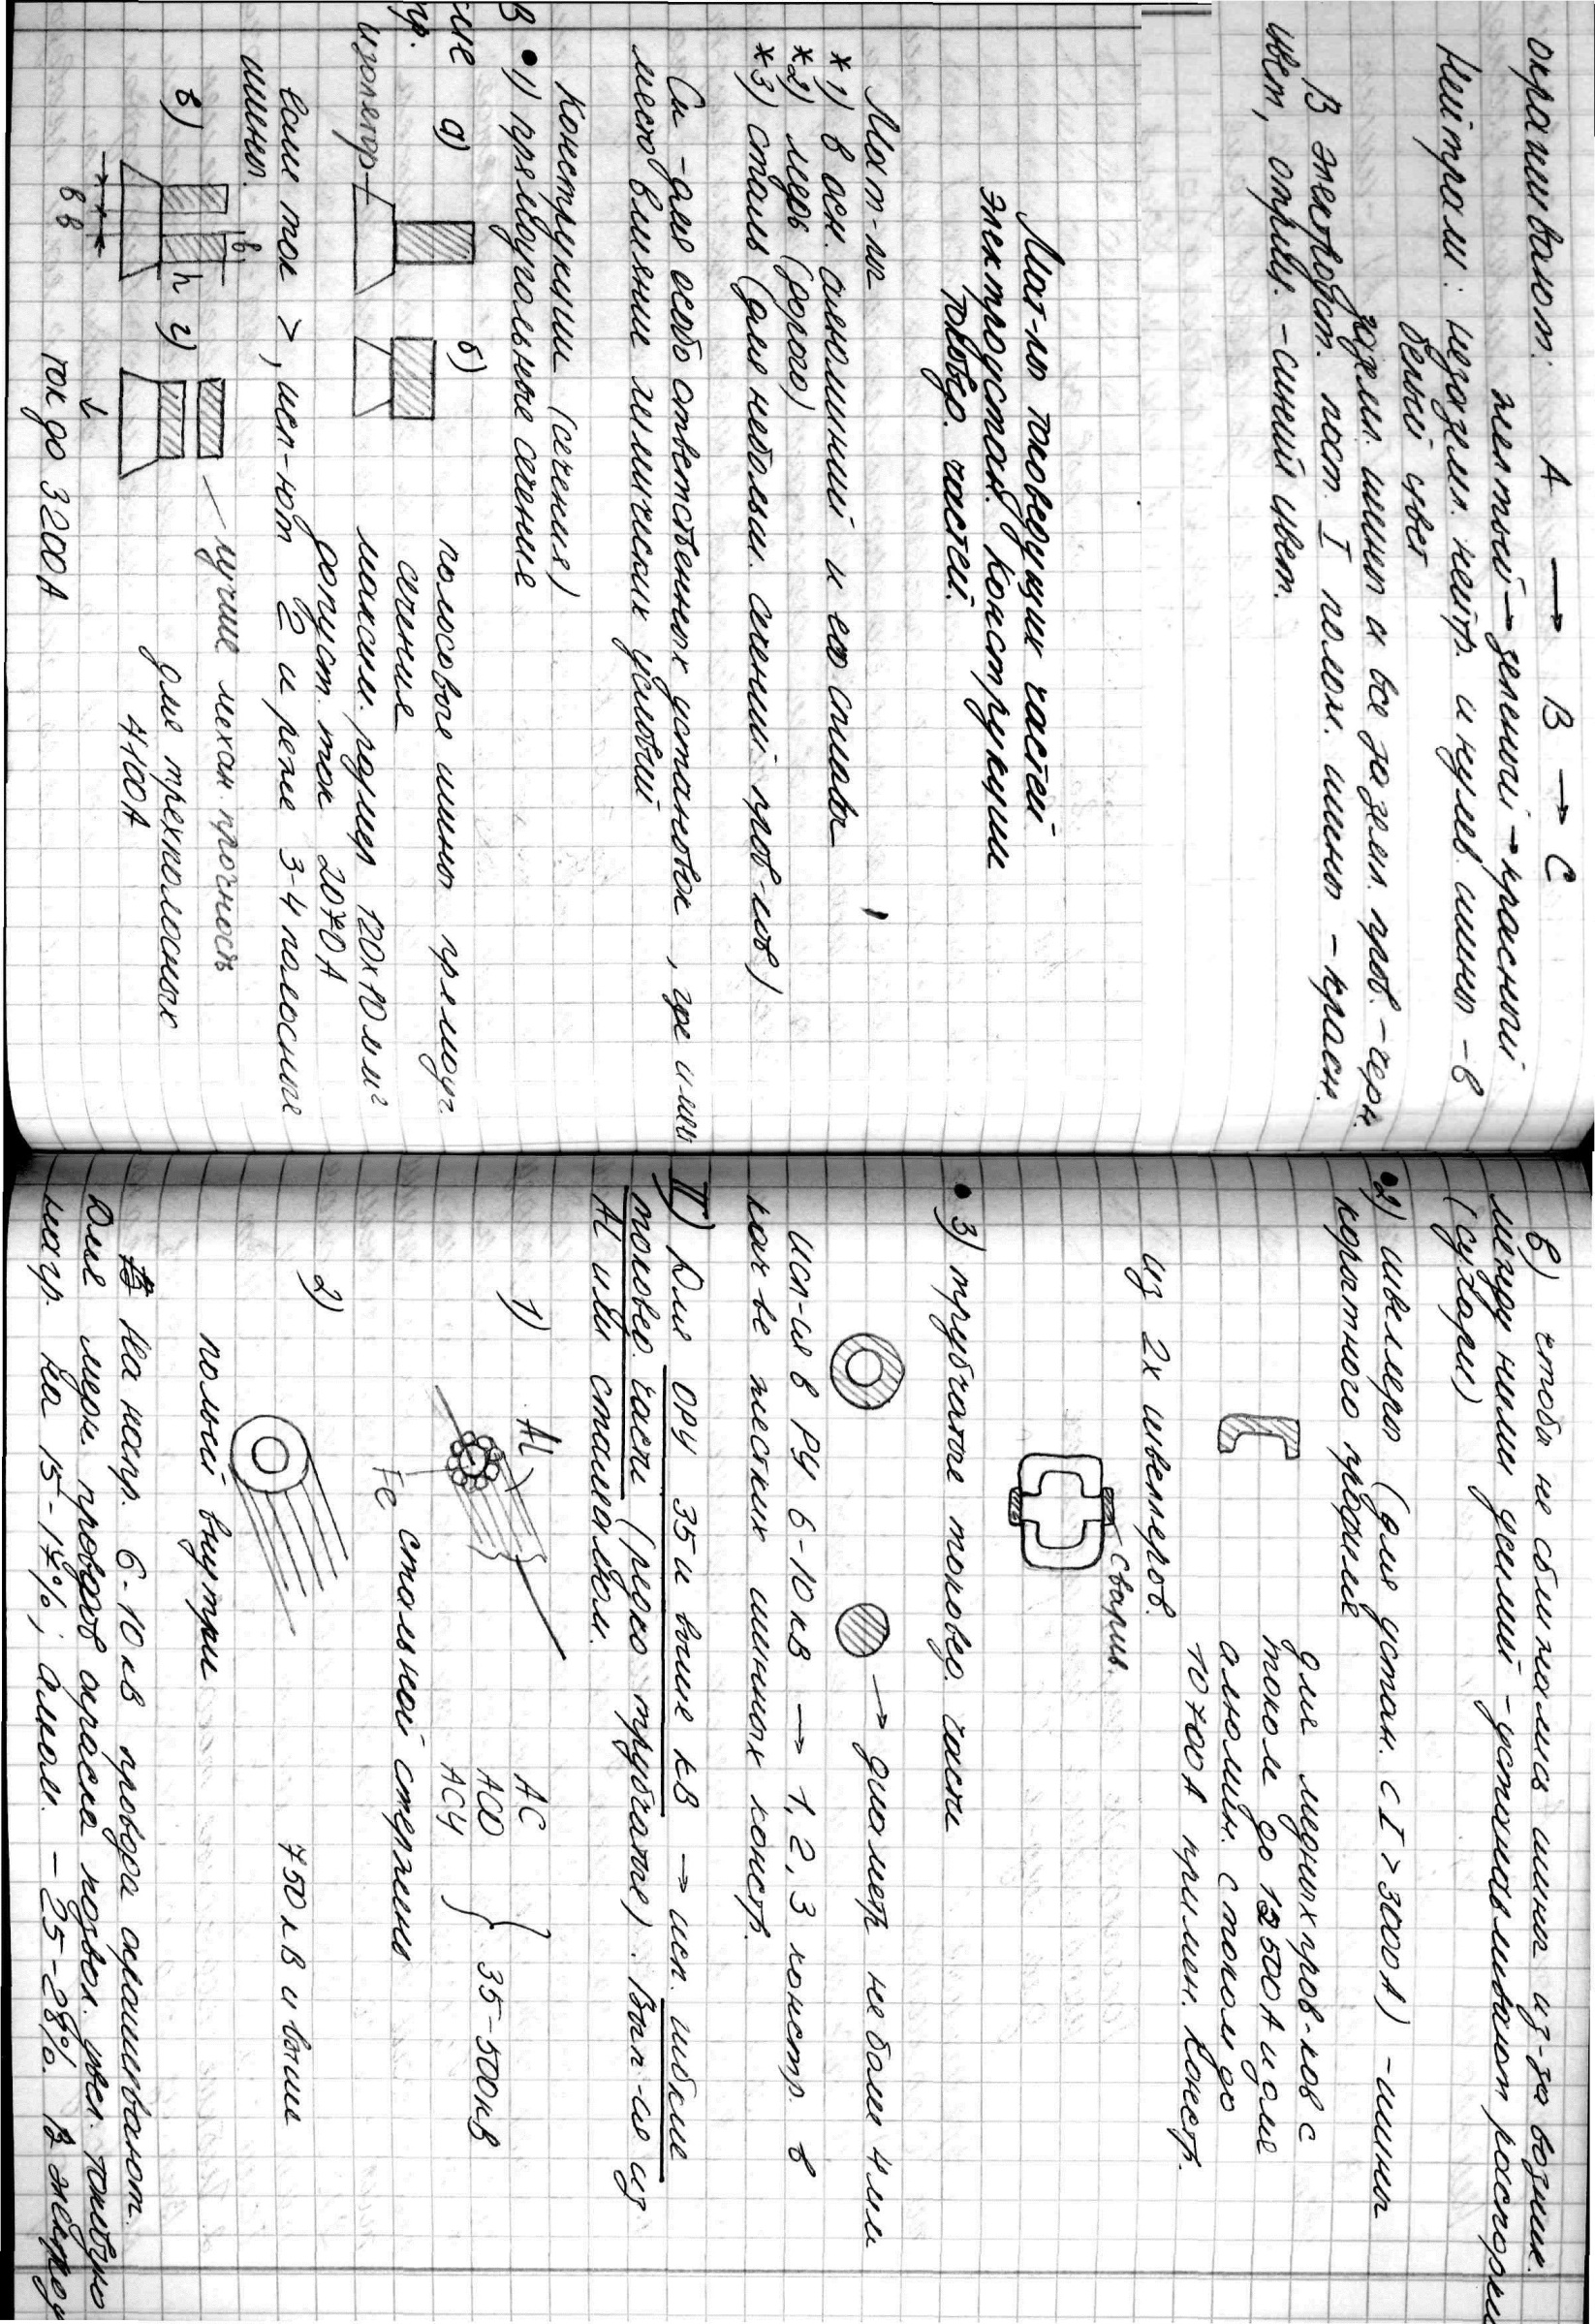 окрашивают. A → B → C
желтый → зеленый → красный
Нейтрали: незаземл. нейтр. и нулев. шины – в
белый цвет
заземл. шины и все зазем. пров. – черн.
В электроуст. пост. I полож. шины – красн.
цвет, отриц. – синий цвет.
Мат-лы токоведущих частей
электроустан. Конструкции
токовед. частей.
Мат-лы
*1) в осн. алюминий и его сплавы
*2) медь (дорого)
*3) сталь (для небольш. сечений пров-ов)
Cu – для особо ответственных установок, где имеет
место влияние химических условий
Конструкции (сечения)
•1) прямоугольные сечения
а) б) полосовые шины прямоуг.
сечения
изолятор
максим. размер 120х10 мм²
допуст. ток 2070 А
Если ток >, исп-ют 2 и реже 3-4 полосные
шины.
в) b h г) лучше механ. прочность
в в
для трехполосных
4100А
ток до 3200А
в) чтобы не сближались шины из-за возник.
между ними усилий – устанавливают распорки
(сухари)
•2) швеллеры (для устан. с I > 3000А) – шины
корытного профиля
для медных пров-ков с
током до 12500А и для
алюмин. с током до
10700А примен. констр.
из 2х швеллеров.
сварив.
•3) трубчатые токовед. части
→ диаметр не более 4 мм
исп-ся в РУ 6-10 кВ → 1, 2, 3 констр. в
кач-ве жестких шинных констр.
II) Для ОРУ 35 и выше кВ → исп. гибкие
токовед. части (редко трубчатые). Вып-ся из
Al или сталиалюм.
1) Al АС
АСО
АСУ } 35-500кВ
Fe стальной стержень
2) 750 кВ и выше
полый внутри
На напр. 6-10 кВ провода окрашивают.
Для медн. проводов окраска позвол. увел. токовую
нагр. на 15-17%; алюм. – 25-28%. В электроу